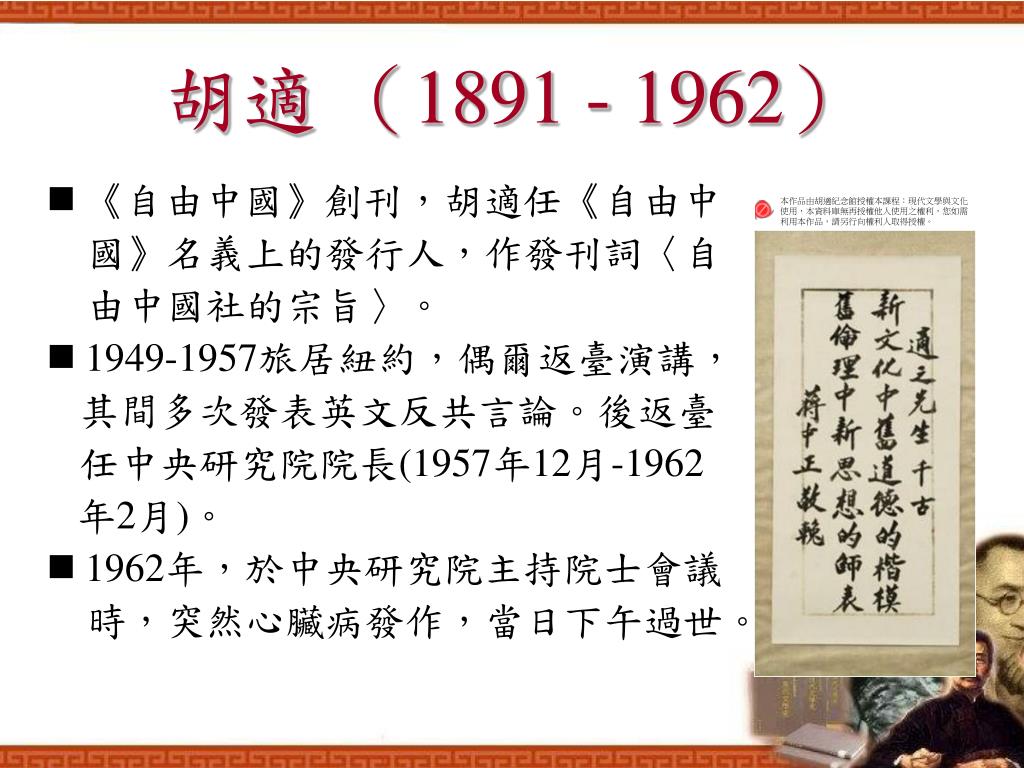 胡適（1891 - 1962）
■《自由中國》創刊，胡適任《自由中
國》名義上的發行人，作發刊詞〈自
由中國社的宗旨〉。
■1949-1957旅居紐約，偶爾返臺演講，
其間多次發表英文反共言論。後返臺
任中央研究院院長(1957年12月-1962
年2月)。
■1962年，於中央研究院主持院士會議
時，突然心臟病發作，當日下午過世。
本作品由胡適紀念館授權本課程：現代文學與文化
使用，本資料庫無再授權他人使用之權利，您如需
利用本作品，請另行向權利人取得授權。
適之先生千古
新文化中舊道德的楷模
舊倫理中新思想的師表
蔣中正敬輓